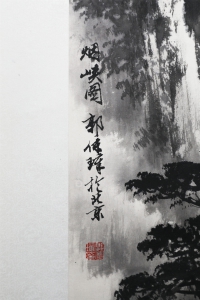 烟峡图 郭传璋于北京